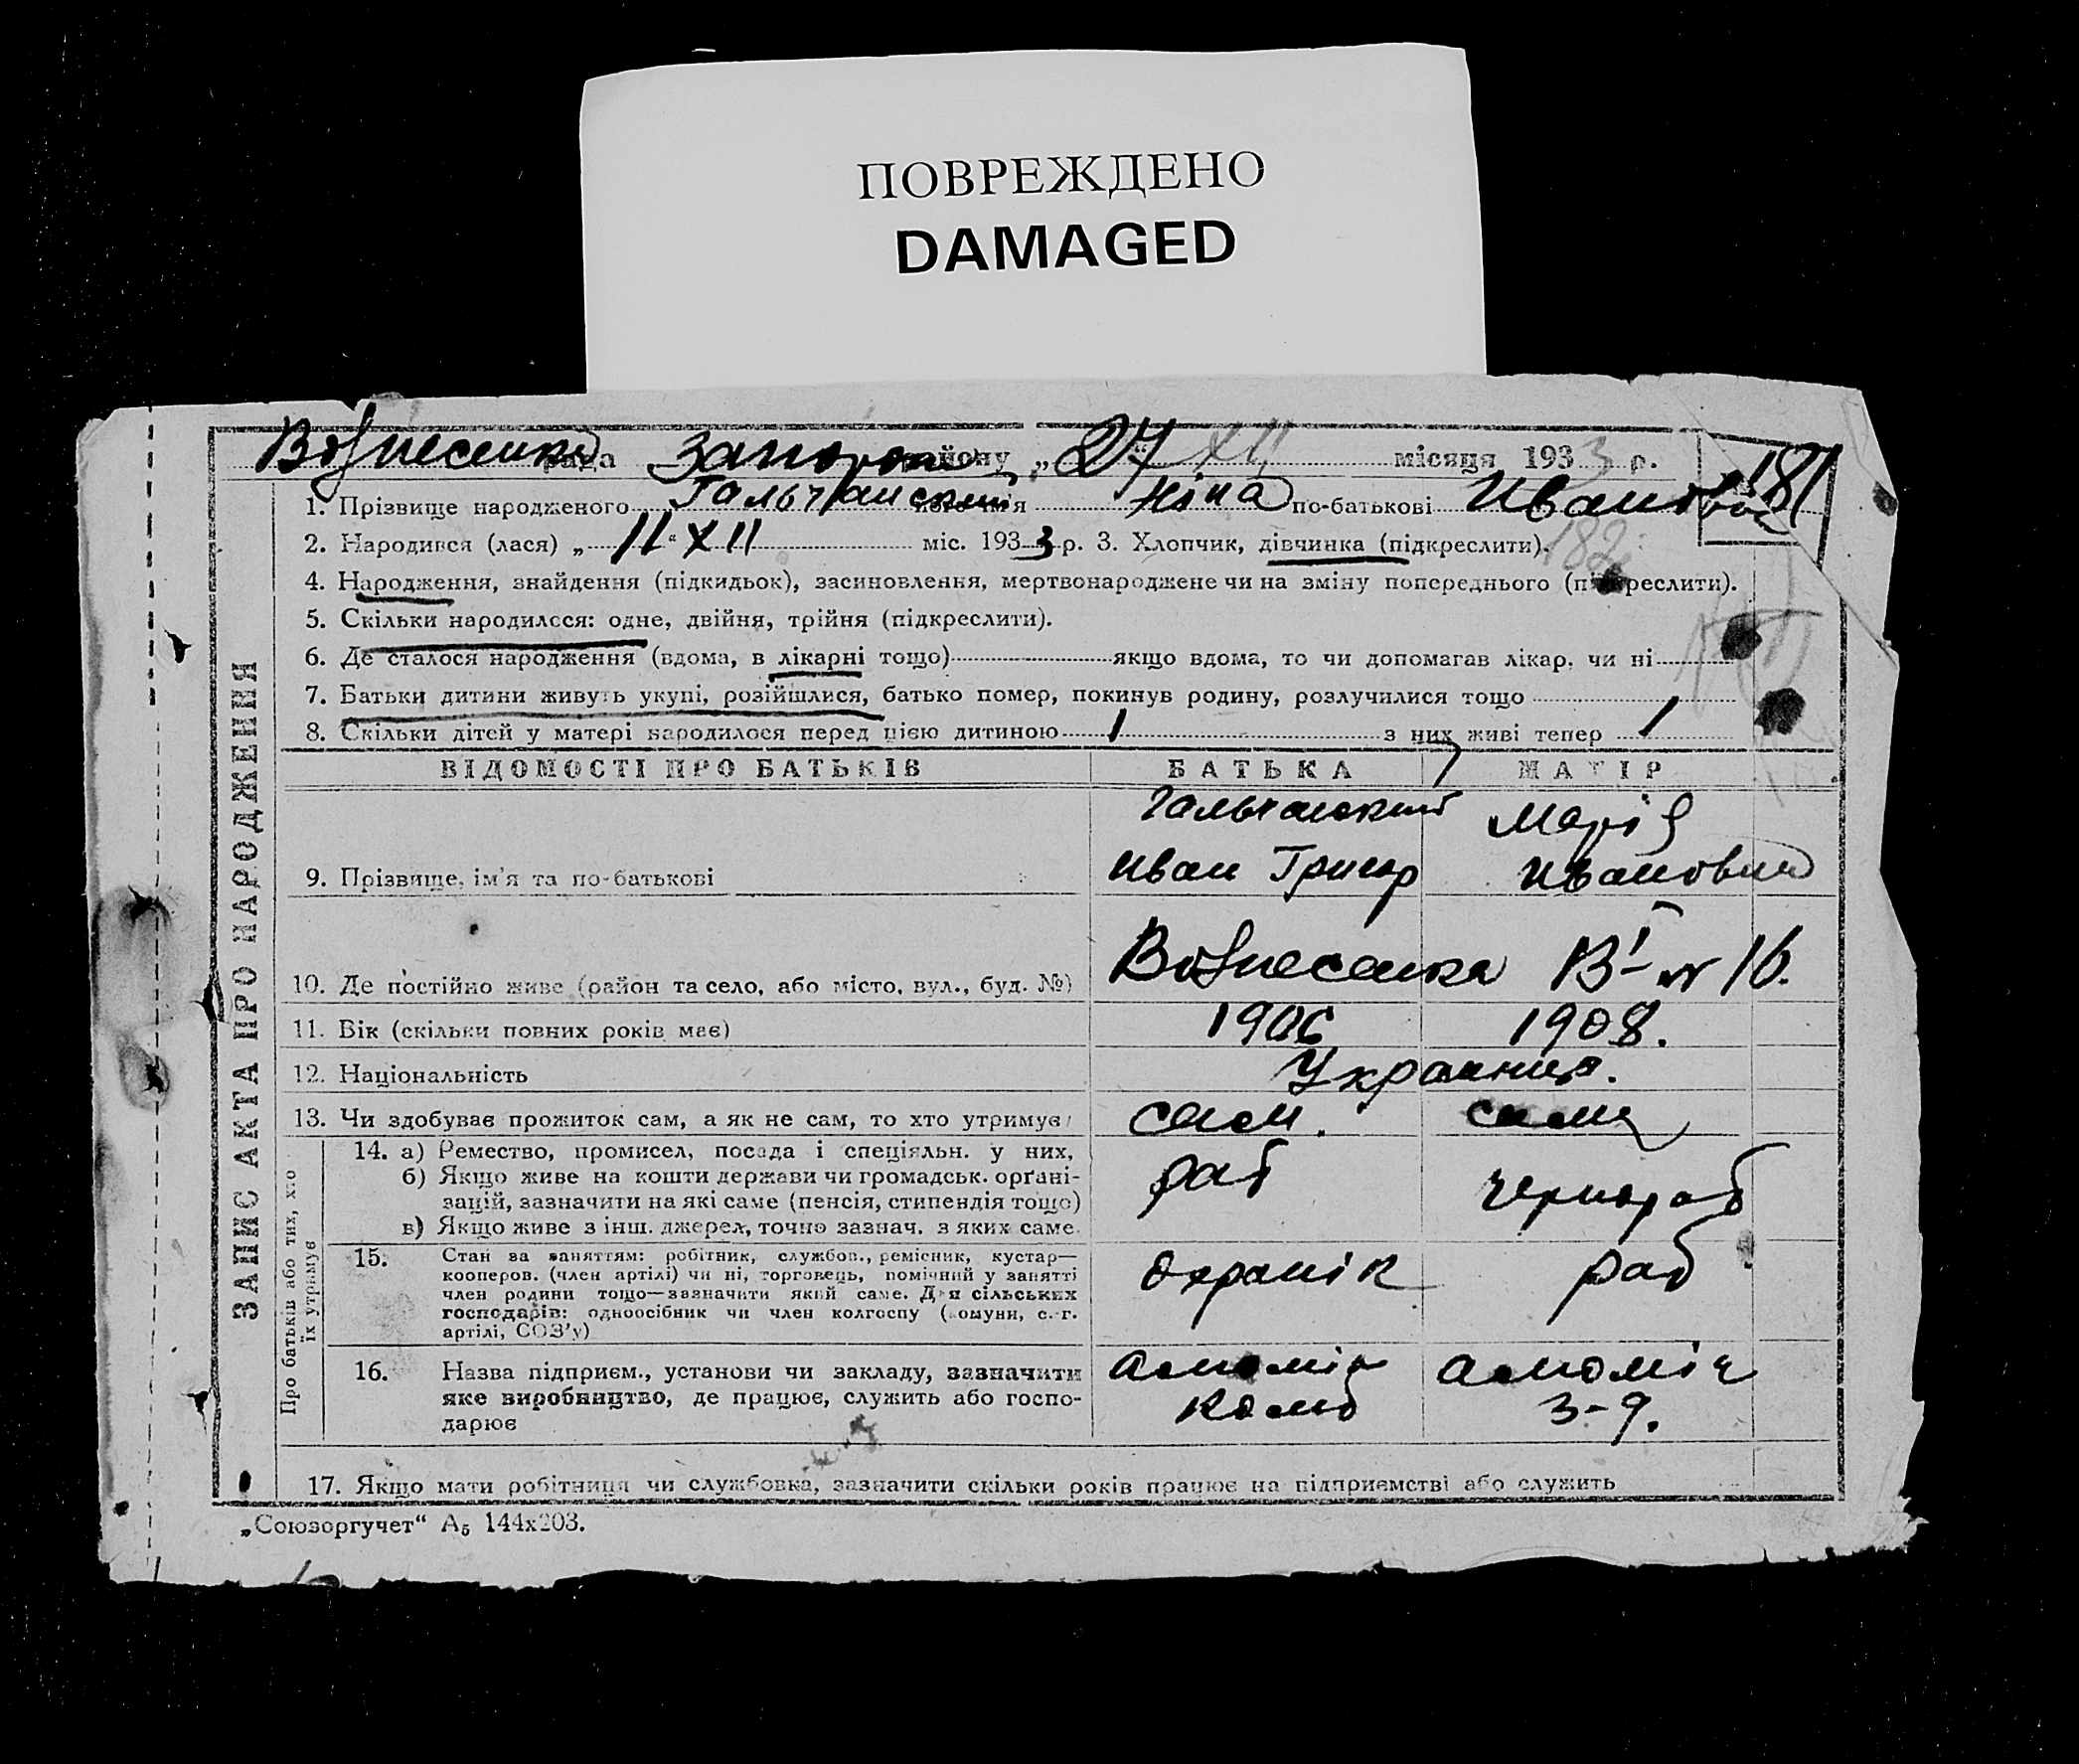 ПОВРЕЖДЕНО
DAMAGED
Вознесенка рада району „27“ XII місяця 1933 р.
181
1. Прізвище народженого ім'я Ніна по-батькові
2. Народився (лася) „11“ XII міс. 1933 р. 3. Хлопчик, дівчинка (підкреслити).
182
4. Народження, знайдення (підкидьок), засиновлення, мертвонароджене чи на зміну попереднього (підкреслити).
5. Скільки народилося: одне, двійня, трійня (підкреслити).
6. Де сталося народження (вдома, в лікарні тощо) якщо вдома, то чи допомагав лікар, чи ні
7. Батьки дитини живуть укупі, розійшлися, батько помер, покинув родину, розлучилися тощо
8. Скільки дітей у матері народилося перед цією дитиною 1 з них живі тепер 1
ЗАПИС АКТА ПРО НАРОДЖЕННЯ
ВІДОМОСТІ ПРО БАТЬКІВ БАТЬКА МАТІР
Марія
9. Прізвище, ім'я та по-батькові Иван Григор
10. Де постійно живе (район та село, або місто, вул., буд. №) Вознесенка 16.
11. Вік (скільки повних років має) 1906 1908.
12. Національність
13. Чи здобуває прожиток сам, а як не сам, то хто утримує сам. сама
Про батьків або тих, хто їх утримує
14. а) Ремество, промисел, посада і спеціяльн. у них,
б) Якщо живе на кошти держави чи громадськ. орґані-
зацій, зазначити на які саме (пенсія, стипендія тощо) раб чернораб
в) Якщо живе з інш. джерел, точно зазнач. з яких саме.
15. Стан за заняттям: робітник, службов., ремісник, кустар—
кооперов. (член артілі) чи ні, торговець, помічний у занятті охранік раб
член родини тощо—зазначити який саме. Для сільських
господарів: одноосібник чи член колгоспу (комуни, с.-г.
артілі, СОЗ'у)
16. Назва підприєм., установи чи закладу, зазначити
яке виробництво, де працює, служить або госпо- комб
дарює
17. Якщо мати робітниця чи службовка, зазначити скільки років працює на підприємстві або служить
„Союзоргучет“ А₅ 144х203.